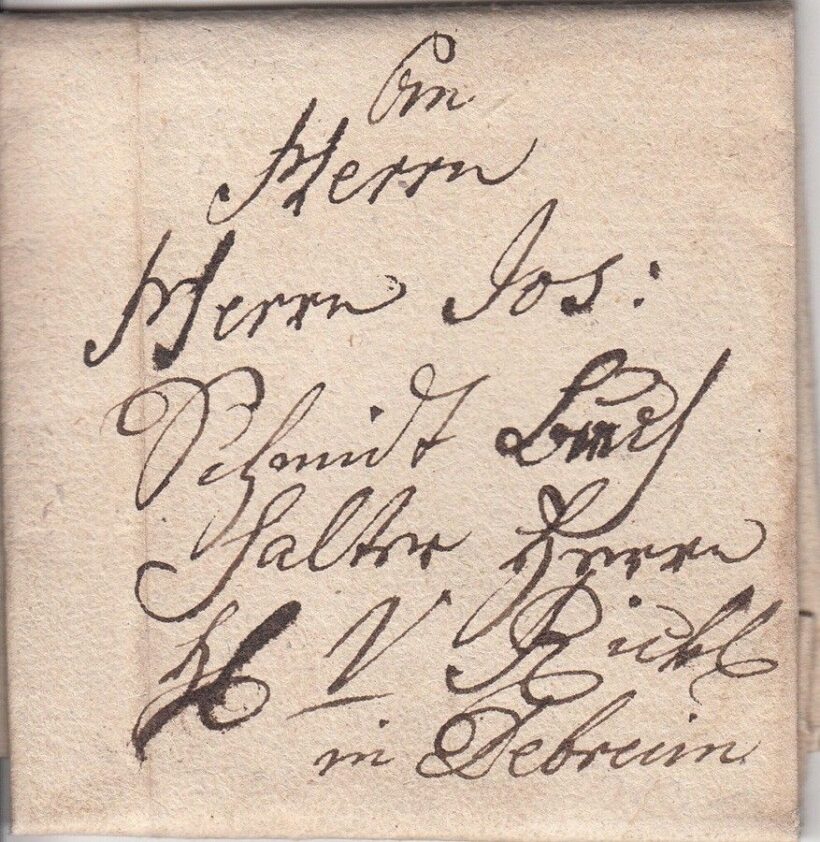 An
Herrn
Herrn Jos:
Schmidt Buch
halter Herrn
H V Rickl
in Debrecin